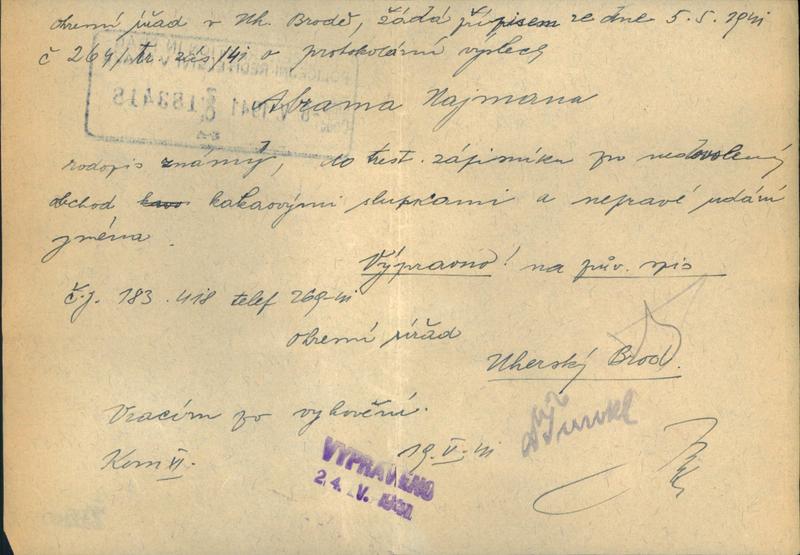 okresní úřad v Uh. Brodě, žádá přípisem ze dne 5.5.1941
č 264/tr. zás/41 o protokolární výslech
183418
Abrama Najmana
rodopis známý, do trest. zápisníku pro nedovolený
obchod kakaovými slupkami a nepravé udání
jména.
Výpravno! na pův. spis
č.j. 183.418 telef 269-VI
okresní úřad
Uherský Brod.
Vracím po vyhovění.
Kom VI.
19. V. 41
VYPRAVENO
24. V. 1941